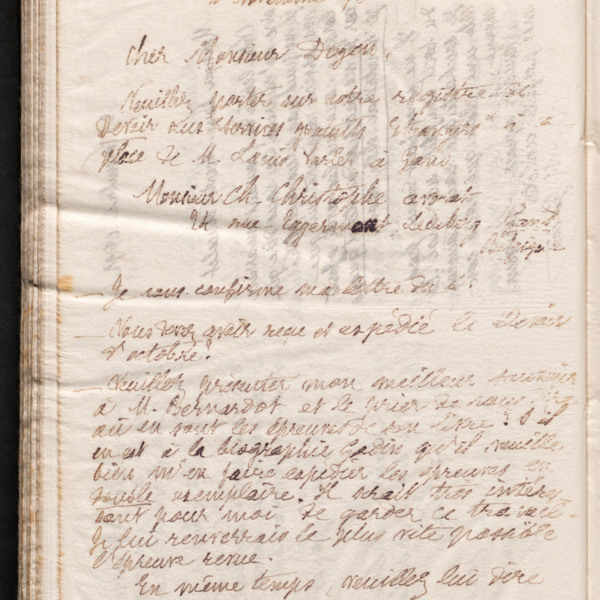 Cher Monsieur Doyen,
Veuillez porter sur notre registre
Devoir aux "Services gratuits Etrangers" à
place de M. Louis à Gand
Monsieur Ch. Christophe avocat
24 rue Eggermont, Ledeberg Gand
Belgique
— Je vous confirme ma lettre du
— Vous devez avoir reçu et expédié le Devoir
d'octobre?
— Veuillez présenter mon meilleur souvenir
à M. Bernardot et le prier de nous dire
où en sont les épreuves de son livre? S'il
en est à la biographie Godin qu'il veuille
bien m'en faire expédier les épreuves en
double exemplaire. Il serait très intéres-
sant pour moi de garder ce travail.
Je lui renverrais le plus vite possible
l'épreuve revue.
En même temps, veuillez lui dire